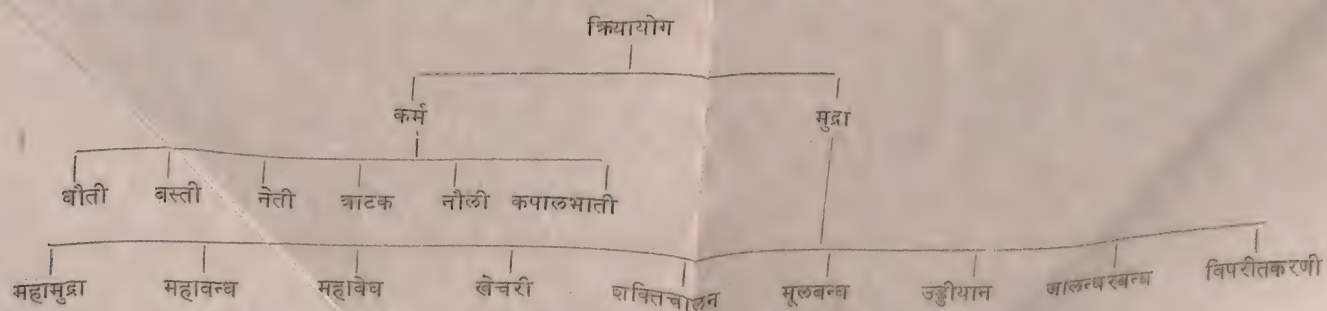 क्रियायोग
कर्म मुद्रा
धौती वस्ती नेती त्राटक नौली कपालभाती
महामुद्रा महाबन्ध महावेध खेचरी शक्तिचालन मूलबन्ध उड्डीयान जालन्धरबन्ध विपरीतकरणी